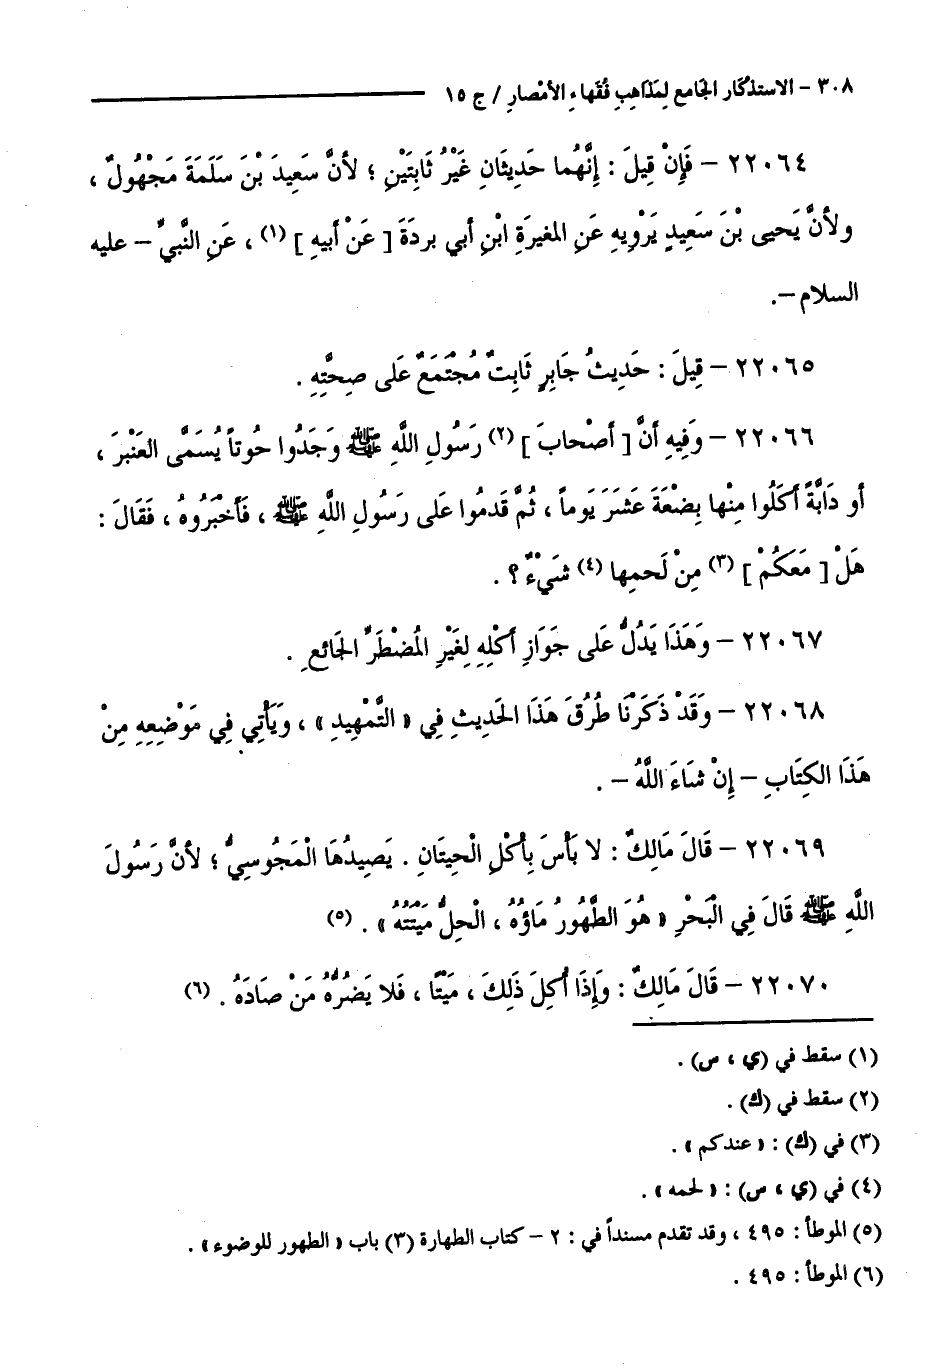 ٣٠٨ - الاستذكار الجامع لِمَذاهِبِ فُقَهاءِ الأمْصارِ / ج ١٥
٢٢٠٦٤ - فَإِنْ قِيلَ : إِنَّهُما حَدِيثَانِ غَيْرُ ثَابِتَيْنِ ؛ لأنَّ سَعِيدَ بْنَ سَلَمَةَ مَجْهُولٌ ،
ولأنَّ يَحيى بْنَ سَعِيدٍ يَرْوِيهِ عَنِ المغيرَةِ ابْنِ أبي بردَةَ [ عَنْ أبيهِ ] (١) ، عَنِ النَّبيِّ – عليه
السلام –.
٢٢٠٦٥ - قِيلَ : حَدِيثُ جَابِرٍ ثَابِتٌ مُجْتَمَعٌ عَلى صِحَّتِهِ .
٢٢٠٦٦ - وَفِيهِ أنَّ [ أصْحابَ ] (٢) رَسُولِ اللَّهِ ﷺ وَجَدُوا حُوتاً يُسَمَّى العَنْبرَ ،
أو دَابَّةً أكَلُوا مِنْها بِضْعَةَ عَشَرَ يَوماً ، ثُمَّ قَدمُوا عَلى رَسُولِ اللَّهِ ﷺ ، فَأخْبَرُوهُ ، فَقَالَ :
هَلْ [ مَعَكُمْ ] (٣) مِنْ لَحمِها (٤) شَيْءٌ ؟ .
٢٢٠٦٧ - وَهَذَا يَدُلُّ عَلى جَوَازِ أكْلِهِ لِغَيْرِ المُضْطَرِّ الجَائعِ .
٢٢٠٦٨ - وَقَدْ ذَكَرْنَا طُرُقَ هَذَا الحَديثِ فِي « التَّمْهِيدِ » ، وَيَأْتِي فِي مَوْضِعِهِ مِنْ
هَذَا الكِتَابِ – إِنْ شَاءَ اللَّهُ – .
٢٢٠٦٩ - قَالَ مَالِكٌ : لا بَأْسَ بِأكْلِ الْحِيتَانِ . يَصِيدُهَا الْمَجُوسِيُّ ؛ لأنَّ رَسُولَ
اللَّهِ ﷺ قَالَ فِي الْبَحْرِ « هُوَ الطَّهُورُ مَاؤُهُ ، الْحِلُّ مَيْتَتُهُ » . (٥)
٢٢٠٧٠ - قَالَ مَالِكٌ : وَإِذَا أُكِلَ ذَلِكَ ، مَيْتًا ، فَلا يَضُرُّهُ مَنْ صَادَهُ . (٦)
(١) سقط في (ي ، س) .
(٢) سقط في (ك) .
(٣) في (ك) : « عندكم » .
(٤) في (ي ، س) : « لحمه » .
(٥) الموطأ : ٤٩٥ ، وقد تقدم مسنداً في : ٢ – كتاب الطهارة (٣) باب « الطهور للوضوء » .
(٦) الموطأ : ٤٩٥ .